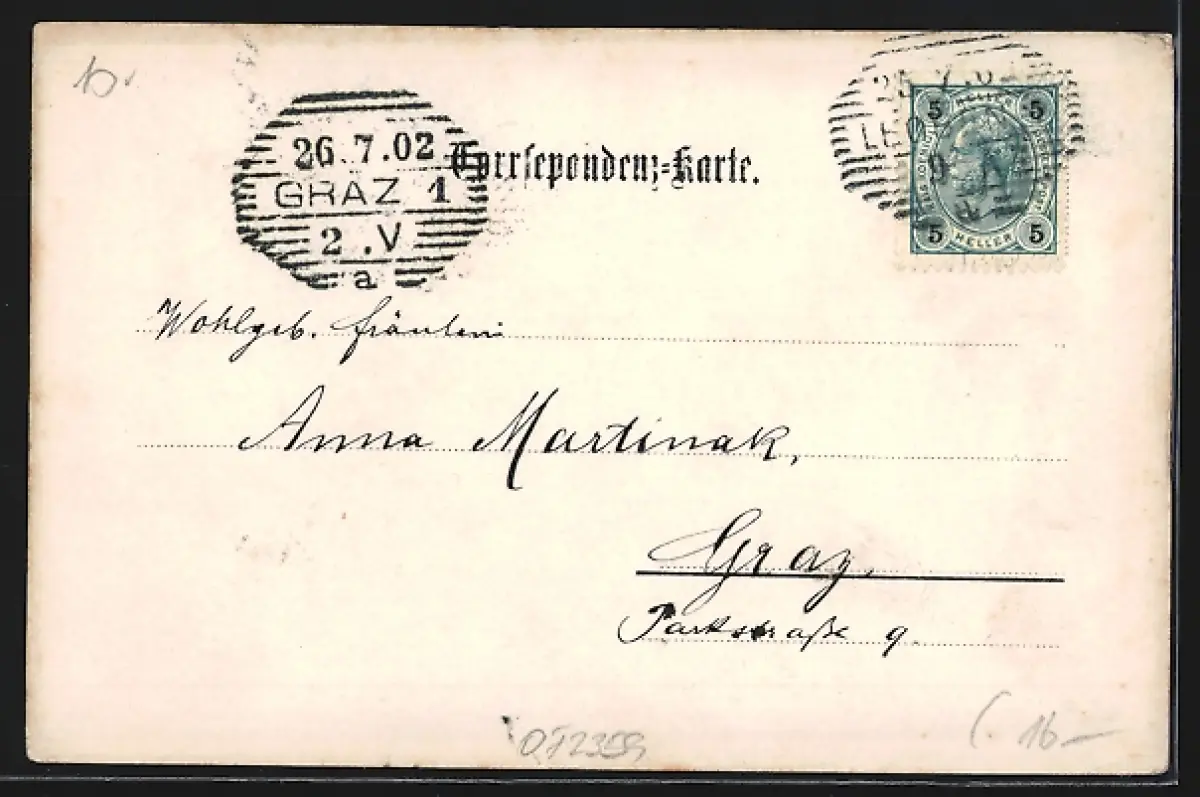 10
26.7.02
GRAZ 1
2.V
a
Corrseponden;-Karte.
5 HELLER 5
5 HELLER 5
Wohlgeb. Fräulein
Anna Martinak,
Graz,
Parkstraße 9.
16-